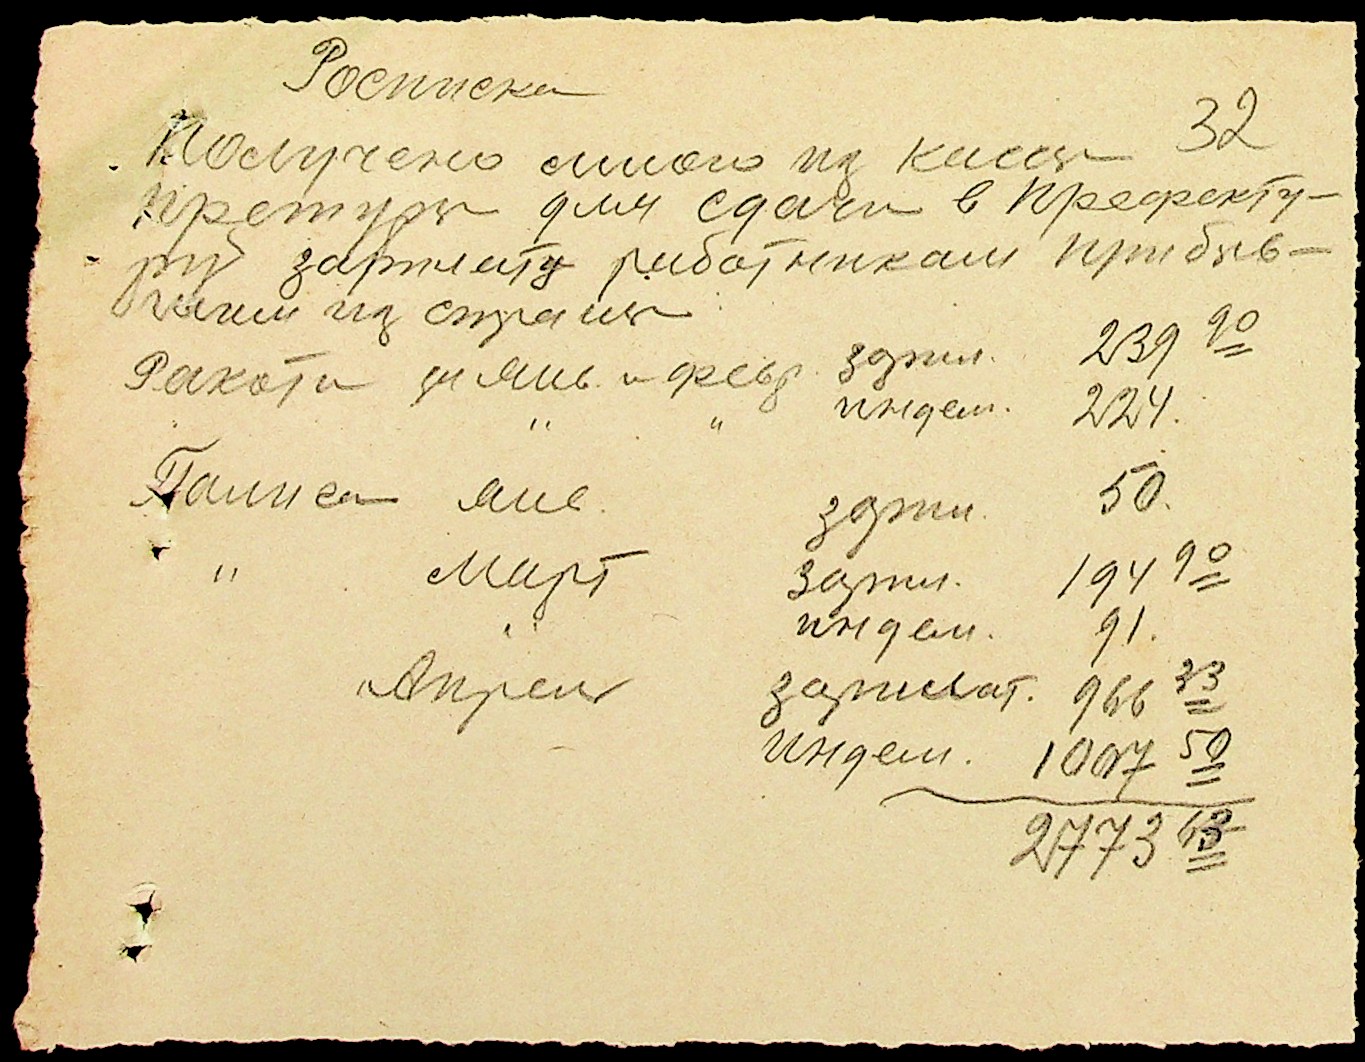 Росписка
32
Получено мною из кассы
претуры для сдачи в Префекту-
ру зарплату работникам прибыв-
шим из страны
Ракоти за янв. и февр. зарпл. 239 90
" " индем. 224.
Палиса янв. зарпл. 50.
" Март зарпл. 194 90
" индем. 91.
Апрель зарплат. 966 33
индем. 1007 50
2773 63